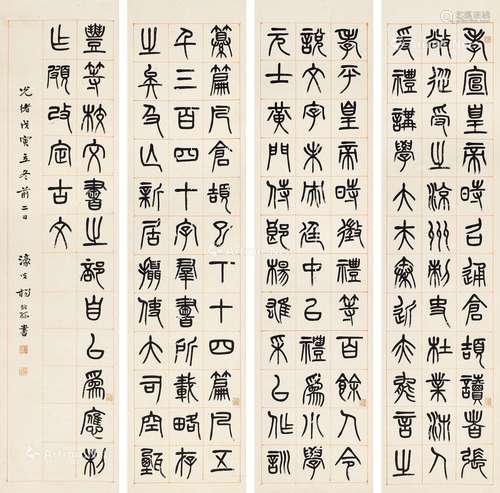 孝宣皇帝時召通倉頡讀者張
敞從受之涼州刺史杜業沛人
爰禮講學大夫秦近亦能言之
孝平皇帝時徵禮等百餘人令
說文字未央廷中以禮為小學
元士黃門侍郎楊雄采以作訓
纂篇凡倉頡以下十四篇凡五
千三百四十字羣書所載略存
之矣及亡新居攝使大司空甄
豐等校文書之部自以為應制
作頗改定古文
光緒戊寅立冬前二日 濠叟楊沂孫書